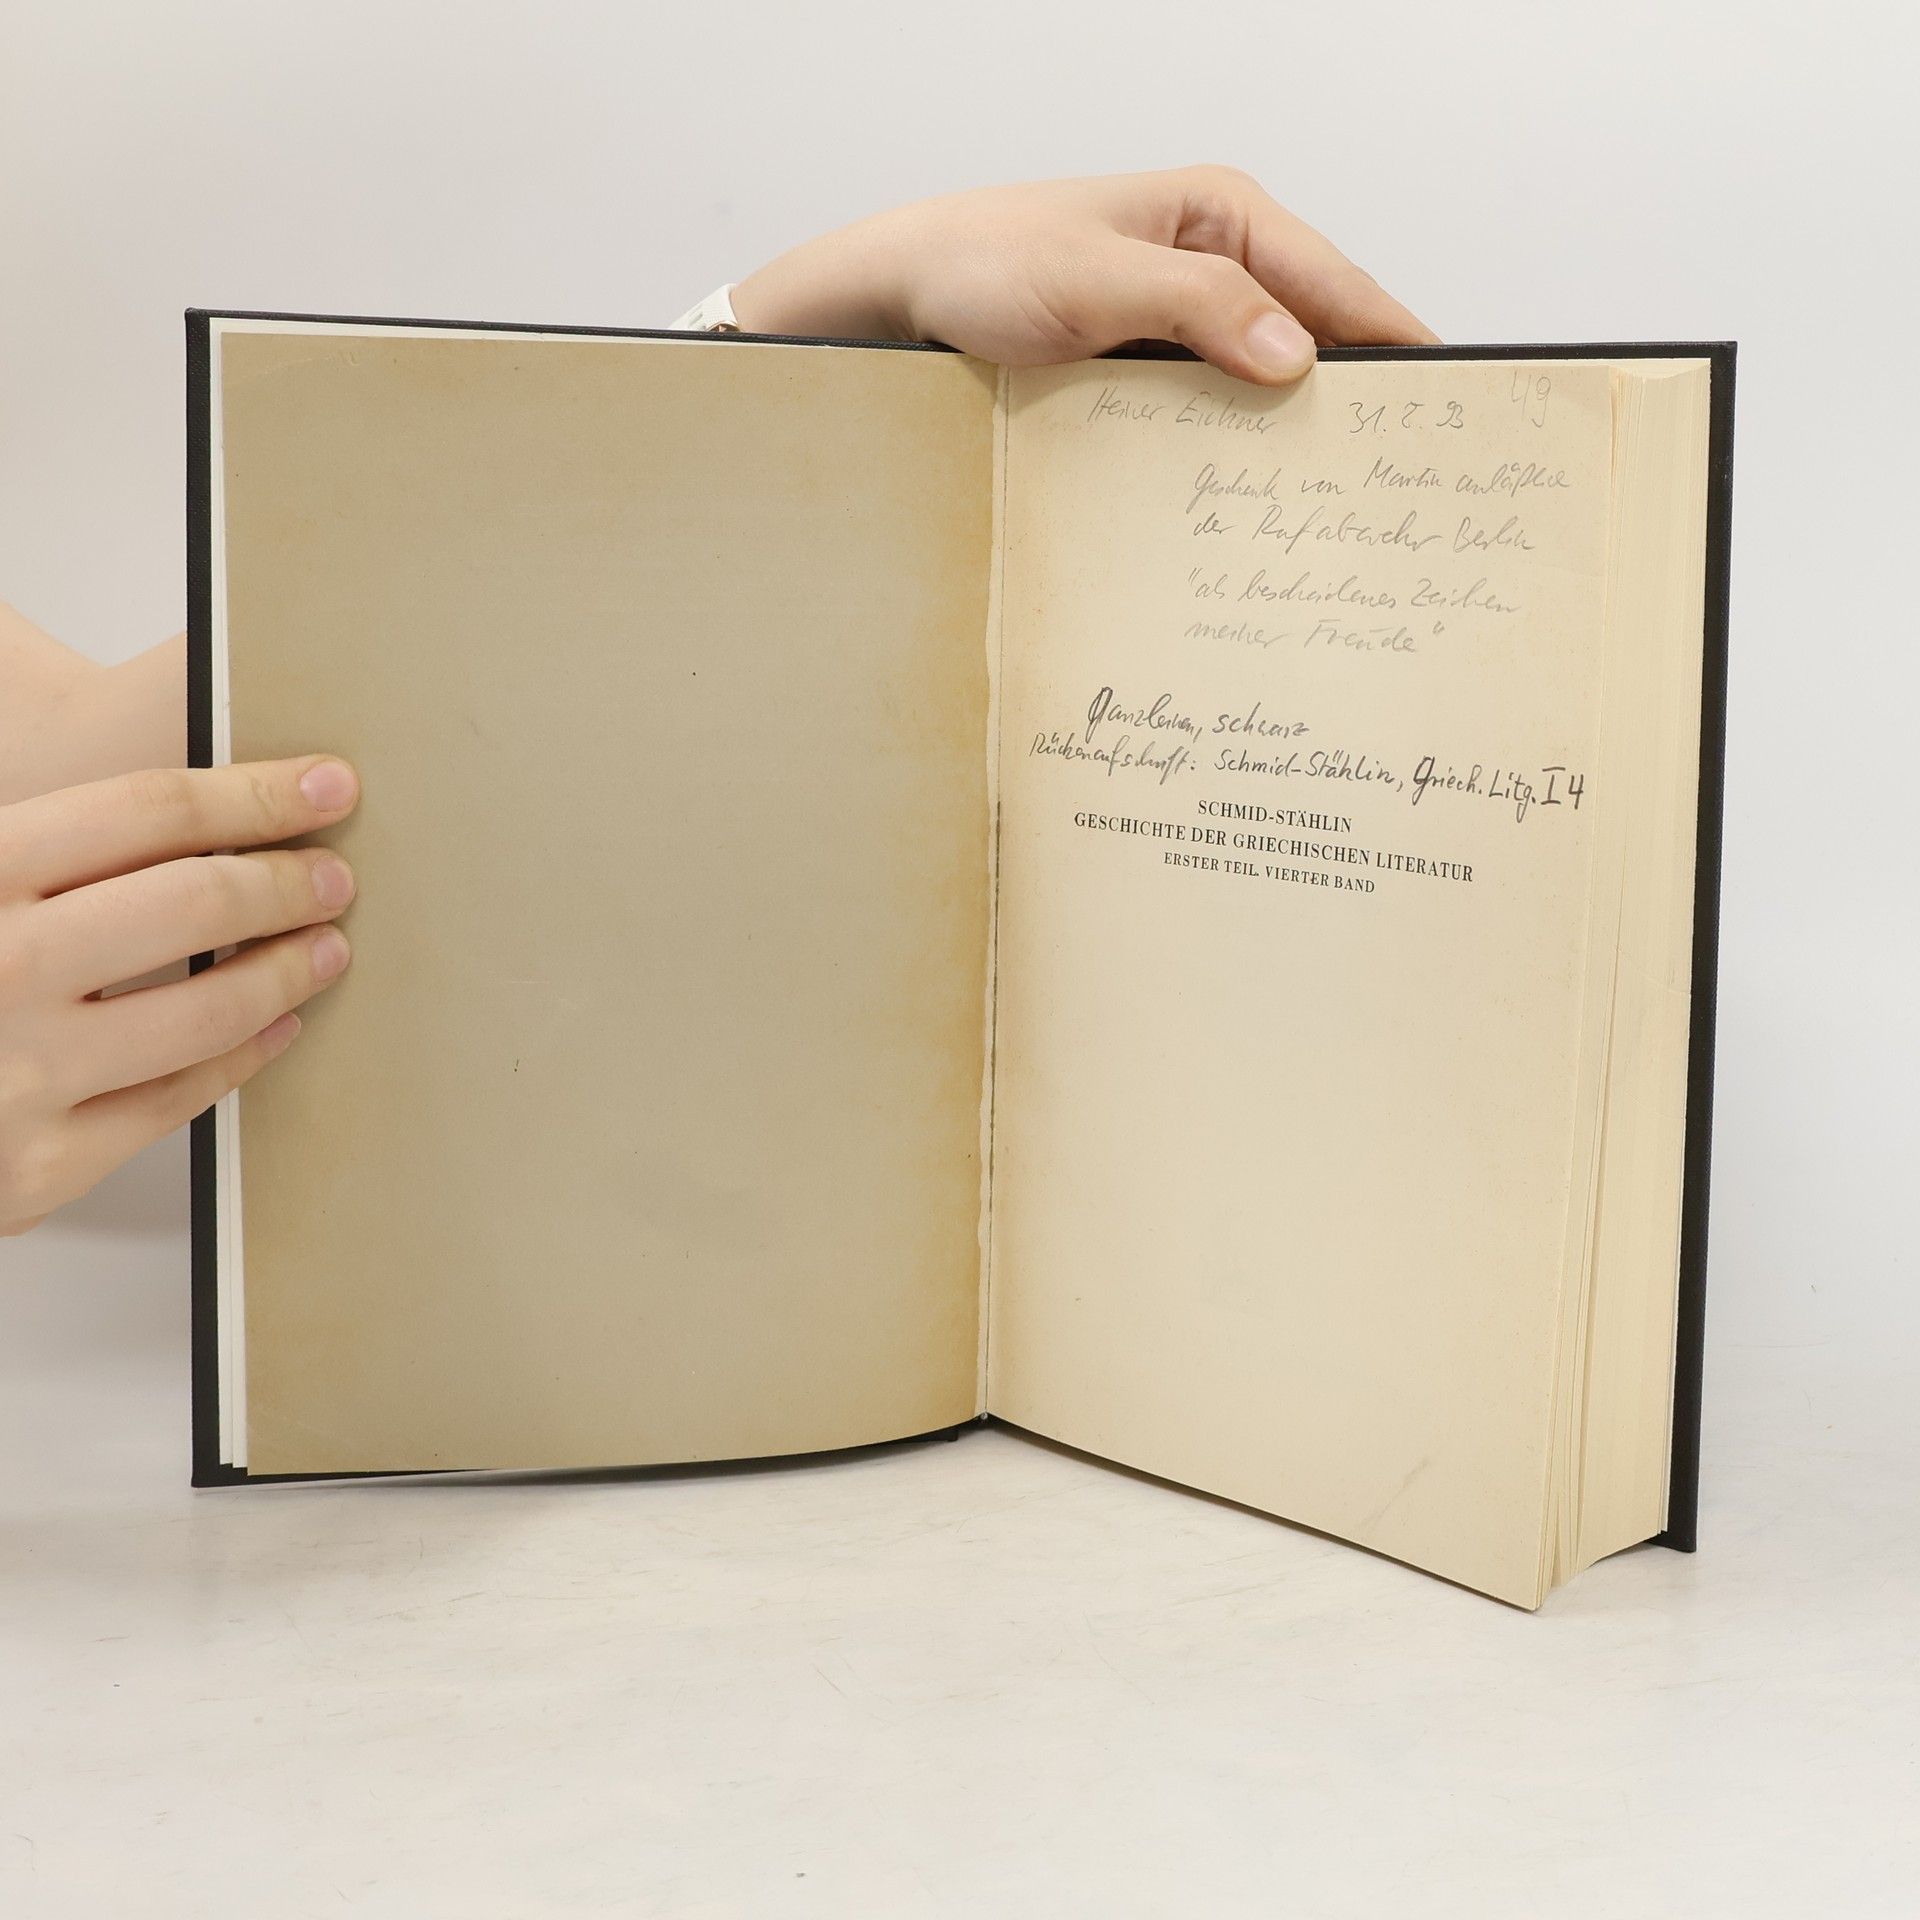 49
Heiner Eichner 31.8.93
Geschenk von Martin anläßlich
der Rufabwehr Berlin
"als bescheidenes Zeichen
meiner Freude"
Ganzleinen, schwarz
Rückenaufschrift: Schmid-Stählin, Griech. Litg. I 4
SCHMID-STÄHLIN
GESCHICHTE DER GRIECHISCHEN LITERATUR
ERSTER TEIL. VIERTER BAND